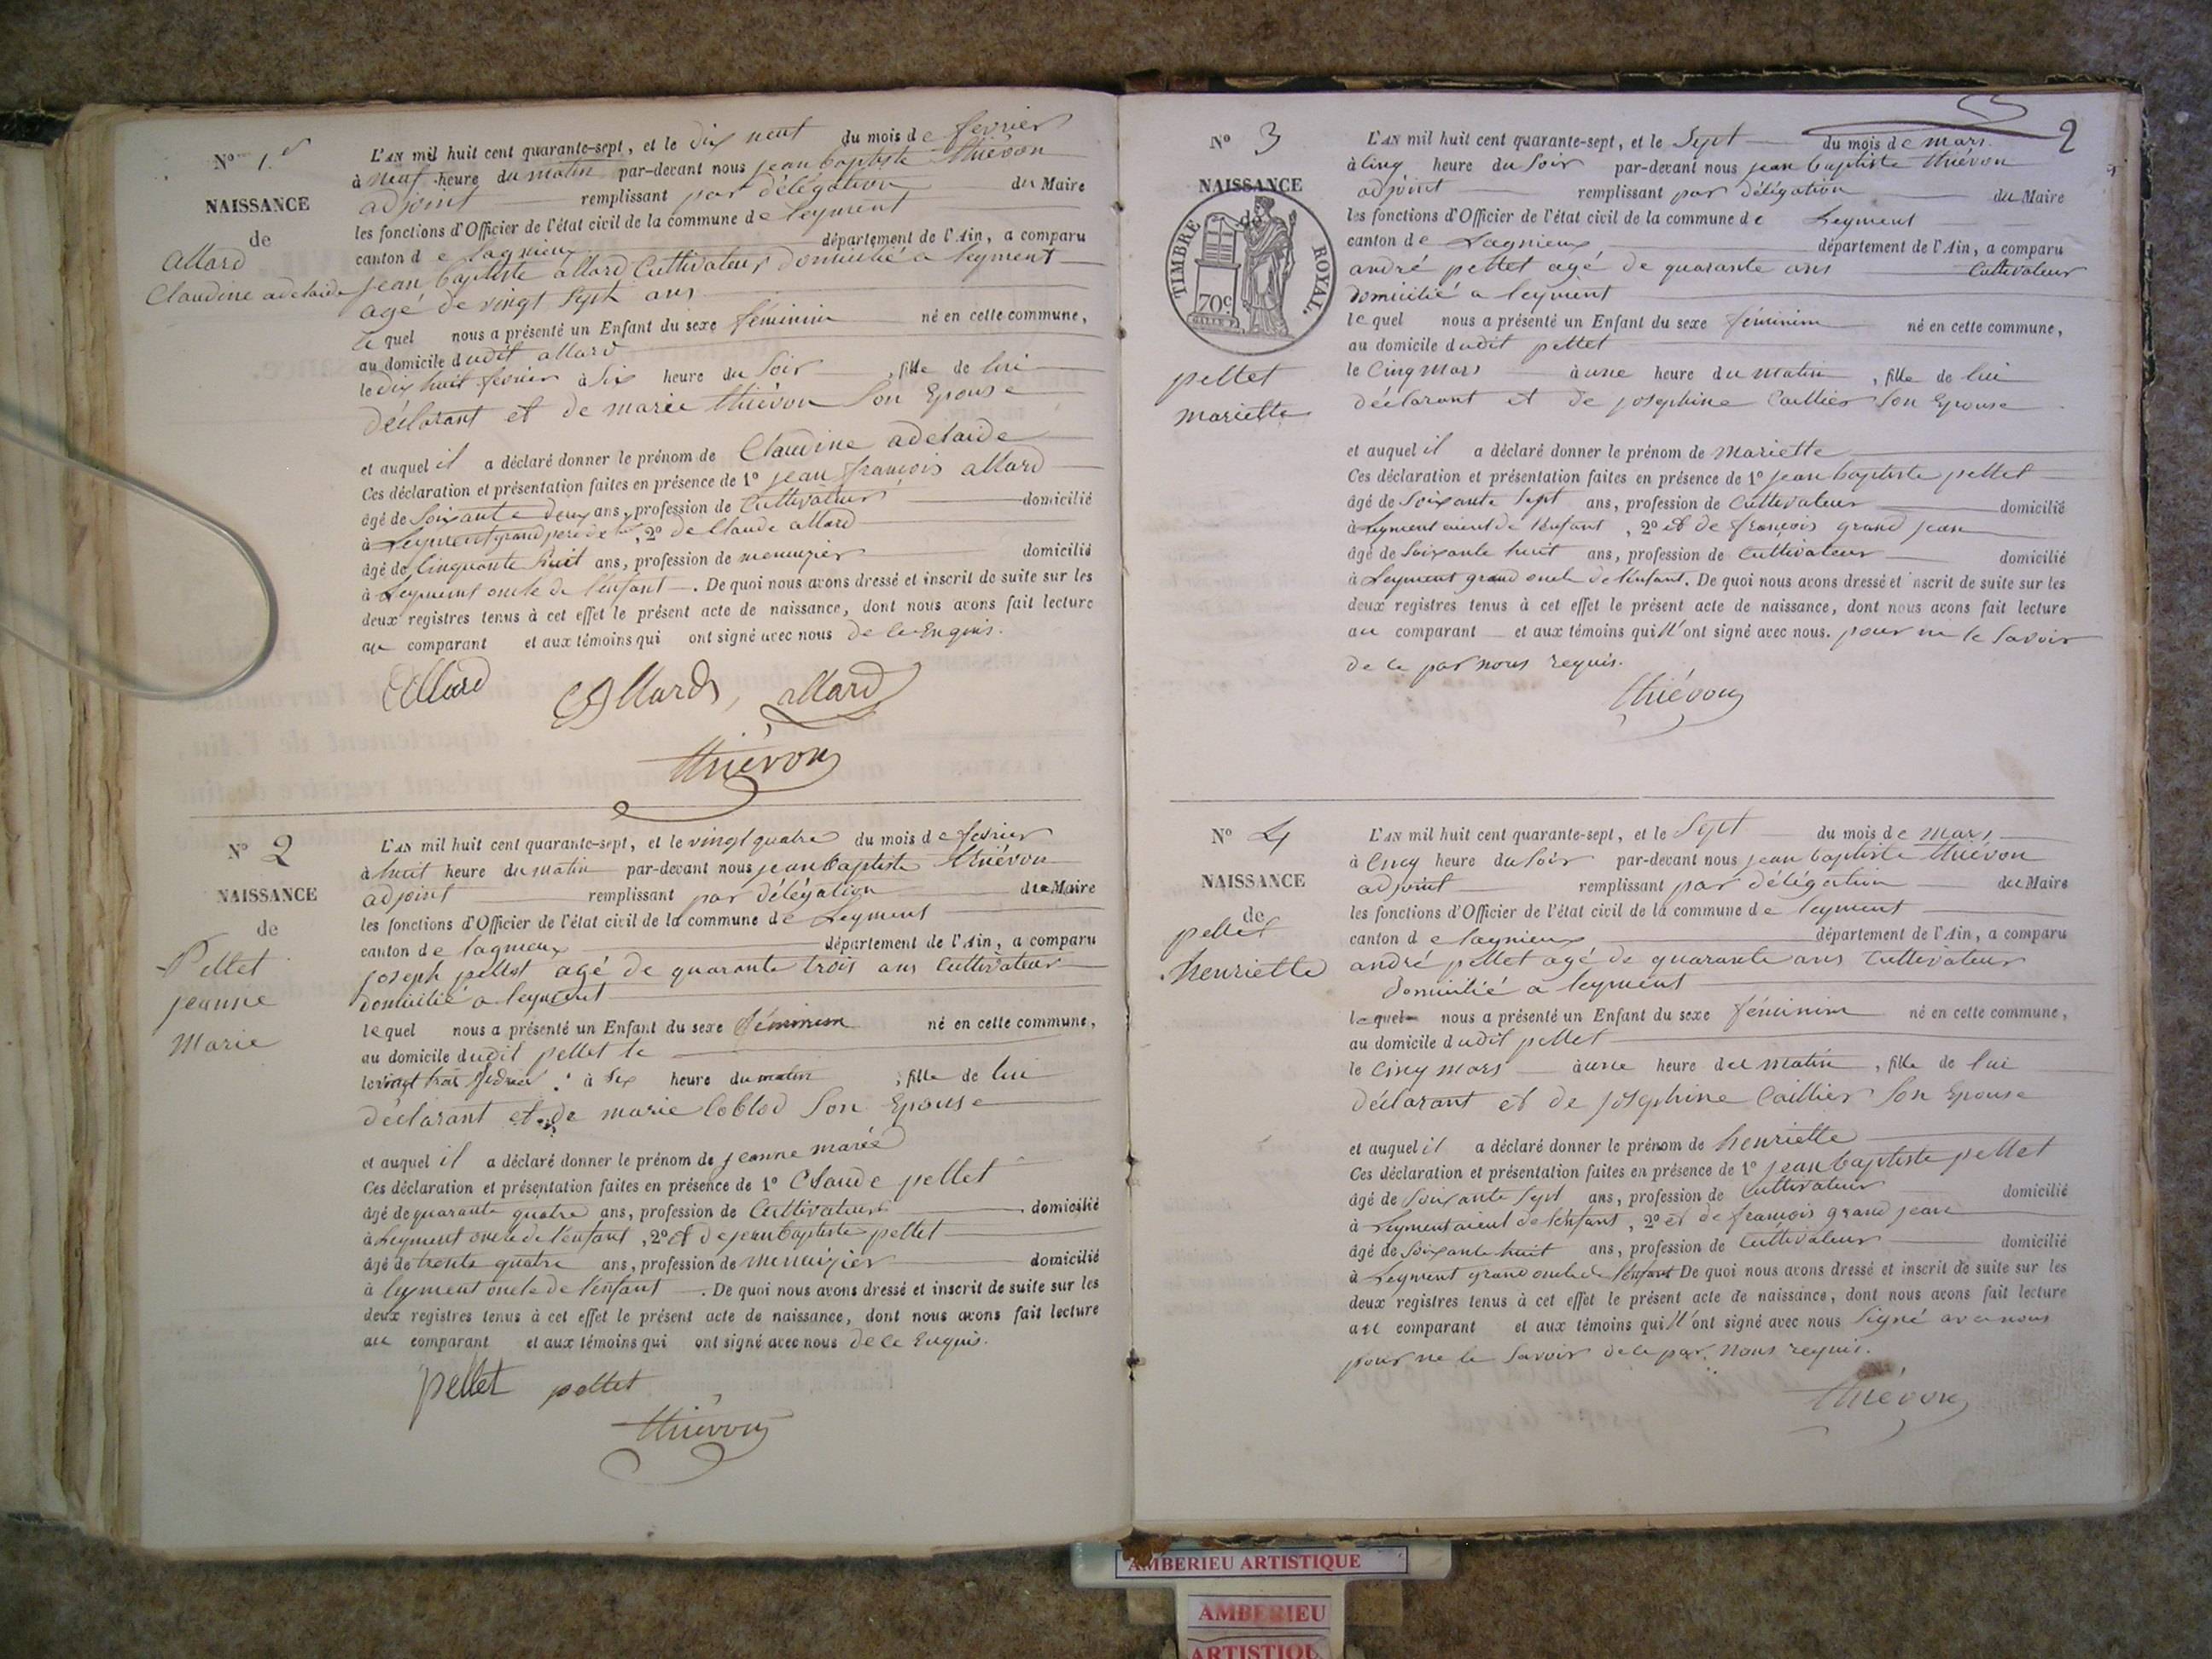 No 1er
NAISSANCE
de
Allard
Claudine adelaide
L'AN mil huit cent quarante-sept, et le dix neuf du mois de fevrier
à neuf heure du matin par-devant nous jean baptiste thiévon
adjoint remplissant par délégation du Maire
les fonctions d'Officier de l'état civil de la commune de leyment
canton de lagnieu département de l'Ain, a comparu
jean baptiste allard Cultivateur domicilié a leyment
agé de vingt sept ans
le quel nous a présenté un Enfant du sexe féminin né en cette commune,
au domicile dudit allard
le dix huit fevrier à six heure du soir, fille de lui
déclarant et de marie thiévon son Epouse
et auquel il a déclaré donner le prénom de Claudine adelaide
Ces déclaration et présentation faites en présence de 1º jean françois allard
âgé de soixante deux ans, profession de Cultivateur domicilié
à Leyment grand pere, 2º de Claude allard
âgé de Cinquante huit ans, profession de menuizier domicilié
à Leyment oncle de l'enfant. De quoi nous avons dressé et inscrit de suite sur les
deux registres tenus à cet effet le présent acte de naissance, dont nous avons fait lecture
au comparant et aux témoins qui ont signé avec nous de ce Enquis.
Allard Allard, allard
thiévon
No 2
NAISSANCE
de
Pellet
jeanne
Marie
L'AN mil huit cent quarante-sept, et le vingt quatre du mois de fevrier
à huit heure du matin par-devant nous jean baptiste thiévon
adjoint remplissant par délégation du Maire
les fonctions d'Officier de l'état civil de la commune de Leyment
canton de lagnieux département de l'Ain, a comparu
joseph pellet agé de quarante trois ans Cultivateur
domicilié a leyment
lequel nous a présenté un Enfant du sexe féminin né en cette commune,
au domicile dudit pellet le
le vingt trois fevrier à six heure du matin, fille de lui
déclarant et de marie son Epouse
et auquel il a déclaré donner le prénom de jeanne marie
Ces déclaration et présentation faites en présence de 1º Claude pellet
âgé de quarante quatre ans, profession de Cultivateur domicilié
à Leyment oncle de l'enfant, 2º et de jean baptiste pellet
âgé de trente quatre ans, profession de menuizier domicilié
à leyment oncle de l'enfant. De quoi nous avons dressé et inscrit de suite sur les
deux registres tenus à cet effet le présent acte de naissance, dont nous avons fait lecture
au comparant et aux témoins qui ont signé avec nous de ce Enquis.
pellet pellet
thiévon
2
No 3
NAISSANCE
de
TIMBRE ROYAL.
70c
pellet
mariette
L'AN mil huit cent quarante-sept, et le Sept du mois de mars
à Cinq heure du Soir par-devant nous jean baptiste thiévon
adjoint remplissant par délégation du Maire
les fonctions d'Officier de l'état civil de la commune de Leyment
canton de Lagnieux département de l'Ain, a comparu
andré pellet agé de quarante ans Cultivateur
domicilié a leyment
le quel nous a présenté un Enfant du sexe féminin né en cette commune,
au domicile dudit pellet
le Cinq mars à une heure du matin, fille de lui
déclarant et de josephine Caillier son Epouse
et auquel il a déclaré donner le prénom de Mariette
Ces déclaration et présentation faites en présence de 1º jean baptiste pellet
âgé de Soixante Sept ans, profession de Cultivateur domicilié
à Leyment aieul de l'enfant, 2º et de françois grand jean
âgé de Soixante huit ans, profession de Cultivateur domicilié
à Leyment grand oncle de l'enfant. De quoi nous avons dressé et inscrit de suite sur les
deux registres tenus à cet effet le présent acte de naissance, dont nous avons fait lecture
au comparant et aux témoins qui n'ont signé avec nous. pour ne le Savoir
de ce par nous requis.
thiévon
No 4
NAISSANCE
de
pellet
henriette
L'AN mil huit cent quarante-sept, et le Sept du mois de mars
à Cinq heure du Soir par-devant nous jean baptiste thiévon
adjoint remplissant par délégation du Maire
les fonctions d'Officier de l'état civil de la commune de leyment
canton de lagnieux département de l'Ain, a comparu
andré pellet agé de quarante ans Cultivateur
domicilié a leyment
lequel nous a présenté un Enfant du sexe féminin né en cette commune,
au domicile dudit pellet
le Cinq mars à une heure du matin, fille de lui
déclarant et de josephine Caillier son Epouse
et auquel il a déclaré donner le prénom de henriette
Ces déclaration et présentation faites en présence de 1º jean baptiste pellet
âgé de Soixante Sept ans, profession de Cultivateur domicilié
à Leyment aieul de l'enfant, 2º et de françois grand jean
âgé de Soixante huit ans, profession de Cultivateur domicilié
à Leyment grand oncle de l'enfant De quoi nous avons dressé et inscrit de suite sur les
deux registres tenus à cet effet le présent acte de naissance, dont nous avons fait lecture
au comparant et aux témoins qui n'ont signé avec nous Signé avec nous
pour ne le Savoir de ce par Nous requis.
thiévon
AMBERIEU ARTISTIQUE
AMBERIEU
ARTISTIQUE